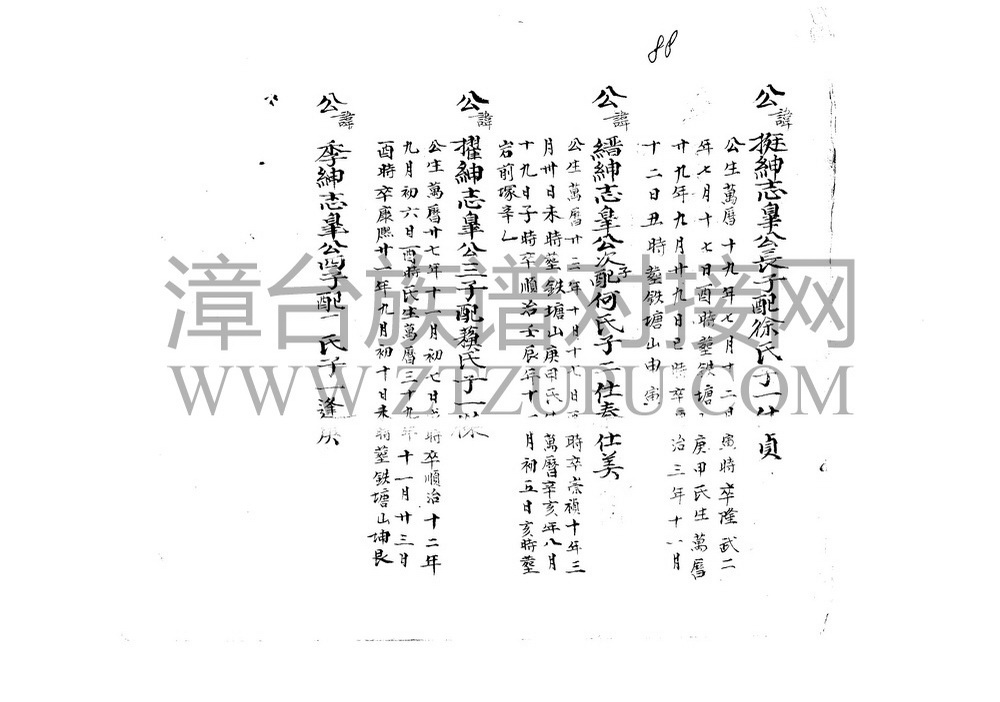 88
公諱挺紳志臯公長子配徐氏子一仕貞
公生萬曆十九年七月十二日寅時卒隆武二
年七月十七日酉時塟鉄塘 庚甲氏生萬曆
廿九年九月廿九日巳時卒 治三年十一月
十二日丑時塟鉄塘山申寅
公諱縉紳志臯公次子配何氏子二仕春仕美
公生萬曆廿二年十月十七日 時卒崇禎十年三
月卅日未時塟鉄塘山庚甲氏 萬曆辛亥年八月
十九日子時卒順治壬辰年十 月初五日亥時塟
岩前塚辛乙
公諱擢紳志臯公三子配 氏子一
公生萬曆廿七年十一月初七日 時卒順治十二年
九月初六日酉時氏生萬曆三十九年十一月廿三日
酉時卒康熙廿一年九月初十日未時塟鉄塘山坤艮
公諱季紳志臯公四子配 氏子一逢
漳台族谱对接网
WWW.ZTZUPU.COM